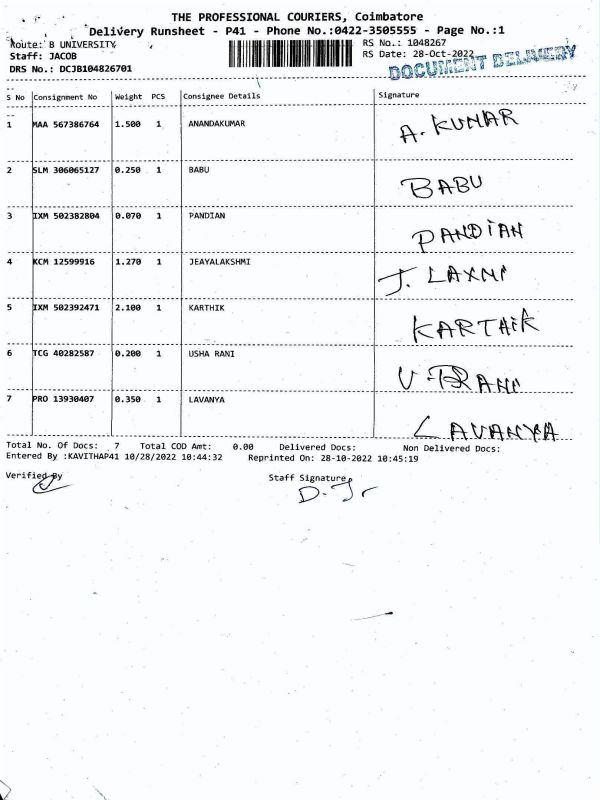 THE PROFESSIONAL COURIERS, Coimbatore
Delivery Runsheet - P41 - Phone No.:0422-3505555 - Page No.:1
Route: B UNIVERSITY
RS No.: 1048267
Staff: JACOB
RS Date: 28-Oct-2022
DRS No.: DCJB104826701
DOCUMENT DELIVERY
S No Consignment No Weight PCS Consignee Details Signature
1 MAA 567386764 1.500 1 ANANDAKUMAR A. KUNAR
2 SLM 306065127 0.250 1 BABU BABU
3 IXM 502382804 0.070 1 PANDIAN PANDIAN
4 KCM 12599916 1.270 1 JEAYALAKSHMI J. LAXNI
5 IXM 502392471 2.100 1 KARTHIK KARTHIK
6 TCG 40282587 0.200 1 USHA RANI
7 PRO 13930407 0.350 1 LAVANYA LAVANYA
Total No. Of Docs: 7 Total COD Amt: 0.00 Delivered Docs: Non Delivered Docs:
Entered By :KAVITHAP41 10/28/2022 10:44:32 Reprinted On: 28-10-2022 10:45:19
Verified By Staff Signature